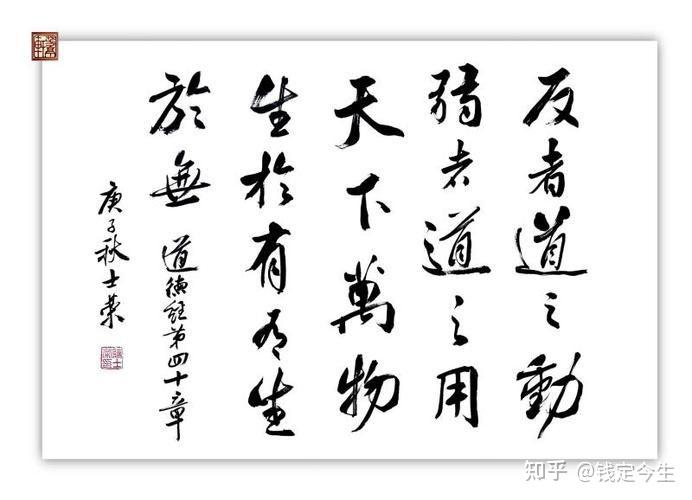 反者道之動
弱者道之用
天下萬物
生於有有生
於無
道德經第四十章
庚子秋士榮
知乎 @钱定今生